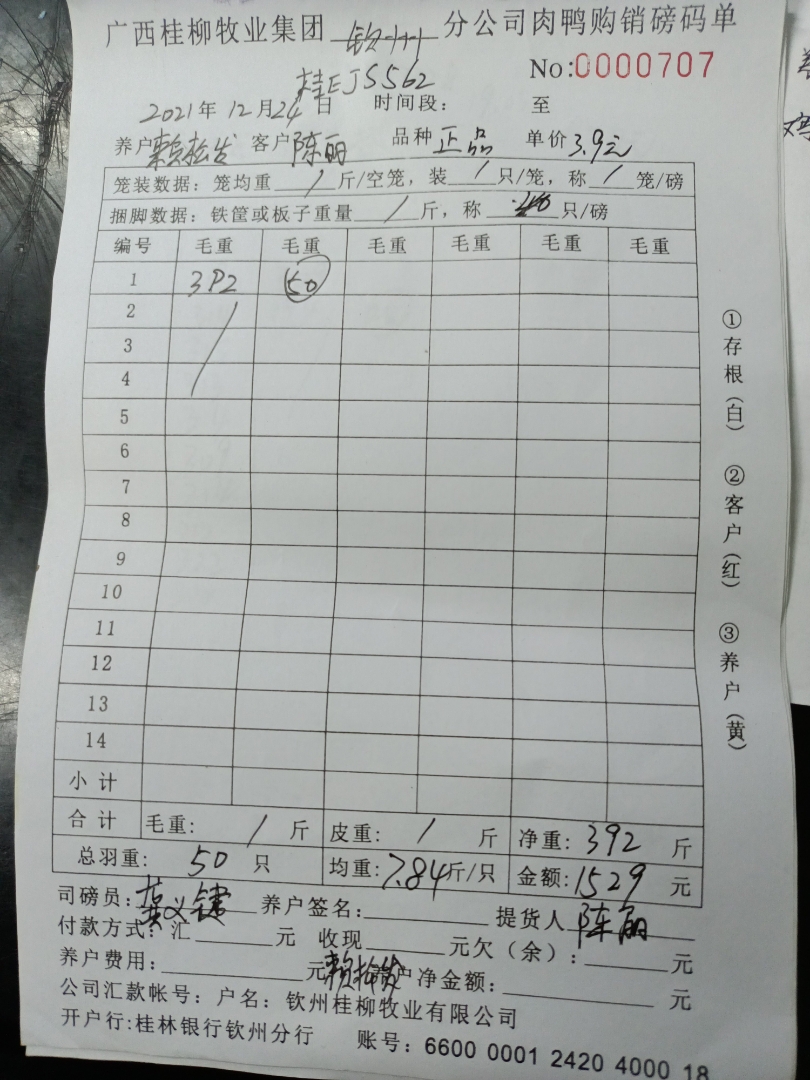 广西桂柳牧业集团 钦州 分公司肉鸭购销磅码单
桂EJ5562 No:0000707
2021年12月24日 时间段: 至
养户 赖松发 客户 陈丽 品种 正品 单价 3.9元
笼装数据: 笼均重 / 斤/空笼, 装 / 只/笼, 称 / 笼/磅
捆脚数据: 铁筐或板子重量 / 斤, 称 只/磅
编号 毛重 毛重 毛重 毛重 毛重 毛重
1 392 50
2
3
4
5
6
7
8
9
10
11
12
13
14
小计
合计 毛重: / 斤 皮重: / 斤 净重: 392 斤
总羽重: 50 只 均重: 7.84斤/只 金额: 1529 元
司磅员: 义键 养户签名: 提货人 陈丽
付款方式: 汇 元 收现 元欠(余): 元
养户费用: 元 赖松发 养户净金额: 元
公司汇款帐号: 户名: 钦州桂柳牧业有限公司
开户行:桂林银行钦州分行 账号: 6600 0001 2420 4000 18
①存根(白) ②客户(红) ③养户(黄)